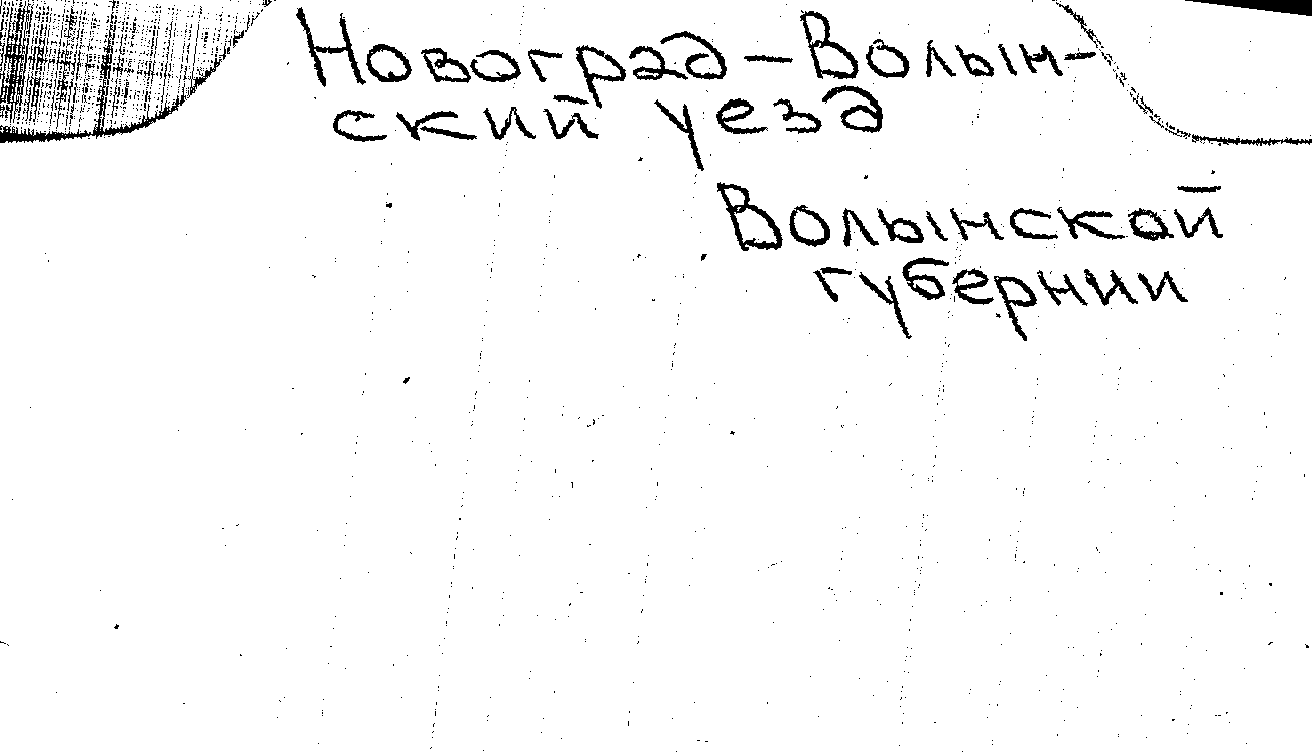 Новоград-Волын-
ский уезд
Волынской
губернии